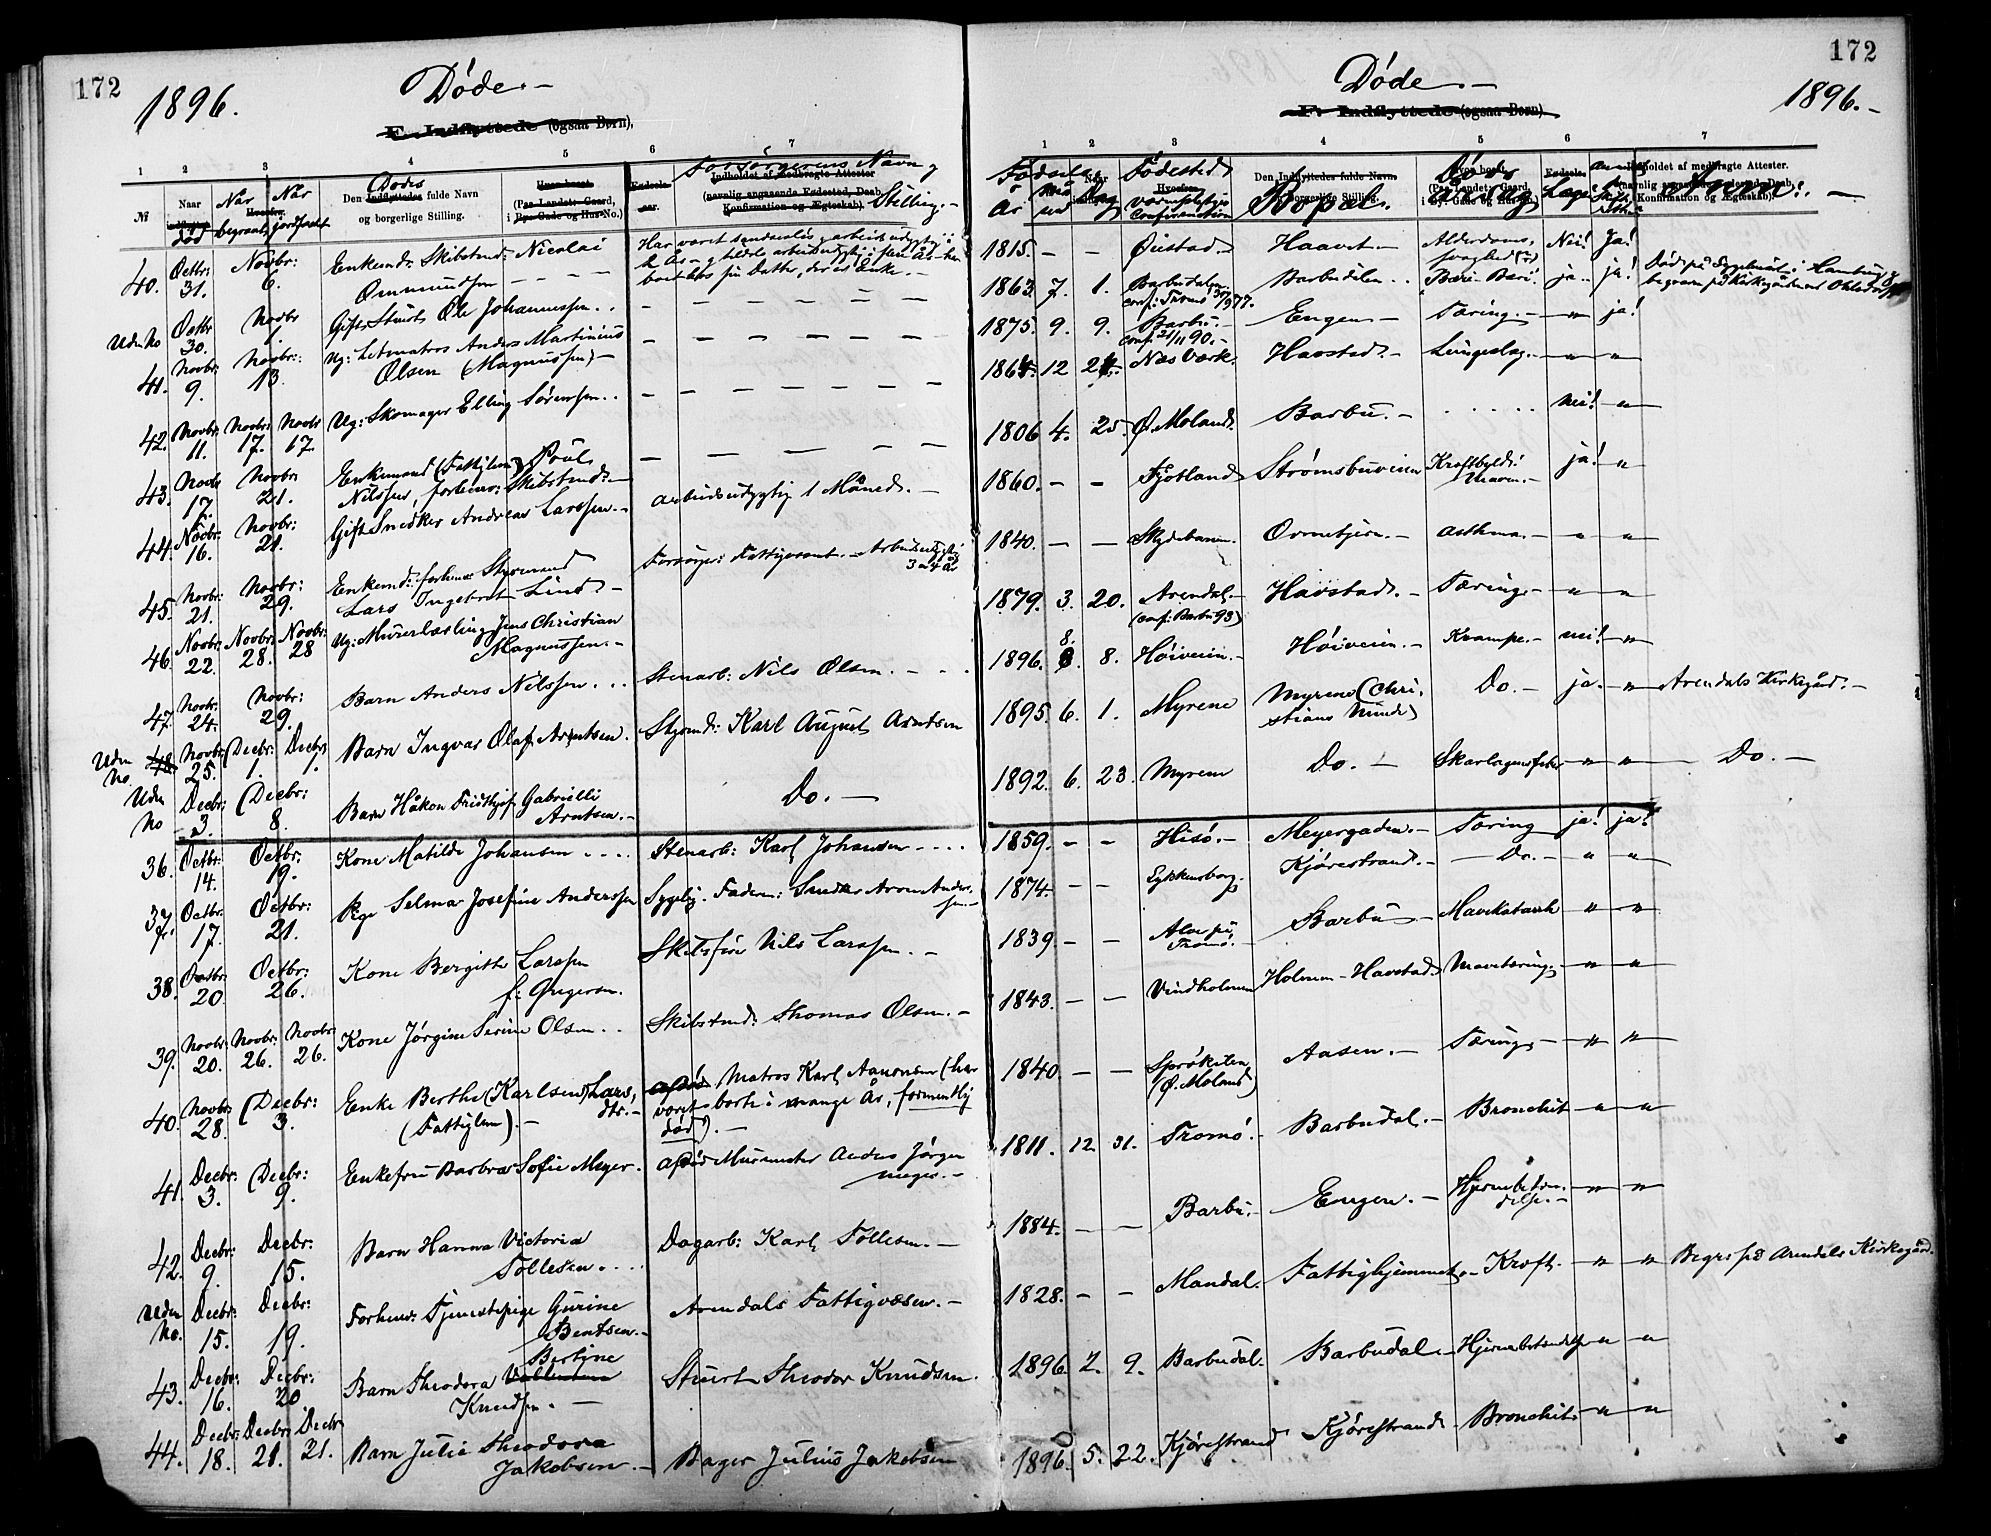 172
1896.
Døde.-
E. Indflyttede (ogsaa Børn),
1 2 3 4 5 6 7
№ Naar død
Når begravet
Når jordfæstet
Dødes
Den Indflyttedes fulde Navn
og borgerlige Stilling.
(Paa Landet: Gaard,
i By: Gade og Hus-No.)
Forsørgerens Navn og
Indholdet af medbragte Attester
(navnlig angaaende Fødested, Daab,
Konfirmation og Ægteskab).
Stilling.-
40. Octbr: 31. Novbr: 6. Enkemd: Skibstmd: Nicolai
Ommundsen - - - -
Uden No Octbr 30. Novbr 1. Gift Stuert Ole Johannessen. . -
41. Novbr: 9. Novbr: 13. Ug: Letmatros Anders Martinius
Olsen (Magnussen) -
42. Novbr: 11. Novbr: 17. Novbr 17. Ug: Skomager Elling Sørensen. . -
43. Novbr 17. Novbr 21. Enkemand (Fattiglem) Poul
Nilssen, forhenv: Skibstmd: -
44. Novbr: 16. Novbr: 21. Gift Snedker Andreas Larssen. - arbeidsudygtig 1 Måned. -
45. Novbr: 21. Novbr: 29. Enkemd: forhenv Styrmand
Lars Ingebret Lind -
Forsørger: Fattigvæsenet. - Arbeidsudygtig
3 a 4 År
46. Novbr: 22. Novbr: 28. Novbr: 28 Ug: Murerlærling Jens Christian
Magnussen. -
47. Novbr: 24. Novbr: 29. Barn Anders Nilssen. . . Stenarb: Nils Olsen. -
Uden No 48. Novbr: 25. (Decbr: 1. Decbr: 1. Barn Ingvar Olaf Arntsen. Styrmd: Karl August Arntsen
Uden No Decbr: 3. (Decbr: 8. Barn Håkon Fridthjof Gabrielli
Arntsen. - Do. -
36. Octbr: 14. Octbr: 19. Kone Matilde Johansen . . . . Stenarb: Karl Johansen - . . .
37. Octbr: 17. Octbr: 21. Pige Selma Josefine Anderssen Sygelig. Faderen: Smed Aron Anders-
sen -
38. Octbr: 20. Octbr: 26. Kone Bergitte Larssen
f: Gregersen. Skibsfører Nils Larssen. -
39. Novbr: 20. Novbr: 26. Novbr: 26. Kone Jørgine Serine Olsen. . Skibstmd: Thomas Olsen. -
40. Novbr: 28. (Decbr: 3. Enke Berthe (Karlsen) Lars-
dtr. -
(Fattiglem). -
afdøde Matros Karl Aanonsen (har
været borte i mange År, formentlig
død). -
41. Decbr: 3. (Decbr: 9. Enkefru Barbra Sofie Meyer. afdød Murmester Anders Jørgen
Meyer. -
42. Decbr: 9. Decbr: 15. Barn Hanna Victoria
Tollesen. . . . Dagarb: Karl Tollesen. -
Uden No. Decbr: 15. Decbr: 19. Forhenv: Tjenestepige Gurine
Bentsen. - Arendals Fattigvæsen. -
Bertine
43. Decbr: 16. Decbr: 20. Barn Theodora
Knudsen. - Stuert Theodor Knudsen.
44. Decbr: 18. Decbr: 21. Decbr 21. Barn Julie Theodora
Jakobsen. - Bager Julius Jakobsen
172
Døde. -
1896. -
F. Indflyttede (ogsaa Børn)
1 2 3 4 5 6 7
Fødsels
År
Dag
Fødested
Den Indflyttedes fulde Navn
Bopæl.
Døds
Årsag
Indholdet af medbragte Attester.
Konfirmation og Ægteskab).
1815. - - Øiestad Haavet. - Alderdoms-
svaghed Nei! Ja!
1863. 7. 1. Barbudalen.
conf: Tromø 30/9 77. Barbudalen. . Beri-Beri. ja. ja! Død på Sygehuset i Hamburg,
1875. 9. 9. Barbu. -
conf: 21/11 90. - Engene - Tæring. - " ja!
12 Næs Værk. Havstad. - Lungeslag. - " "
1806 4. 25. Ø. Moland. Barbu. - . . . . . nei! "
1860. - - Fjotland Strømsbuveien Kræftbyld i
Maven. - ja! "
1840. - - Skydebanen. Ørnebjern. - asthma. - " "
1879. 3. 20. Arendal. -
(conf: Barbu 93) Havstad. - Tæring. - " "
1896. 8. 8. Høiveien. - Høiveien. - Krampe. - nei! "
1895. 6. 1. Myrene Myrene (Chri-
stians Minde) Do. - ja. " Arendals Kirkegård. -
1892. 6. 23. Myrene Do. - Skarlagensfeber " " Do. -
1859. - - Hisø. - Meyergaden. - Tæring ja! ja!
1874. - - Lykkensborg. Kjørestrand. - - Do. - " "
1839. - - Alve på
Tromø. - Barbu - Mavekatarrh " "
1843. - - Vindholmen Holmen - Havstad Mavetæring " "
1840. - - Sprøkilen
(Ø. Moland) Aasen. - Tæring - " "
1811. 12 31. Tromø. - Barbudal. - Bronchit " "
1884. - - Barbu. - Engene. - Hjernebetæn-
delse. - " "
1828. - - Mandal. Fattighjemmet. - Kræft. - " " Begr: på Arendals Kirkegård.
1896. 2. 9. Barbudal. Barbudal. - Hjernebetændelse " "
1896. 5. 22. Kjørestrand Kjørestrand - Bronchit " "